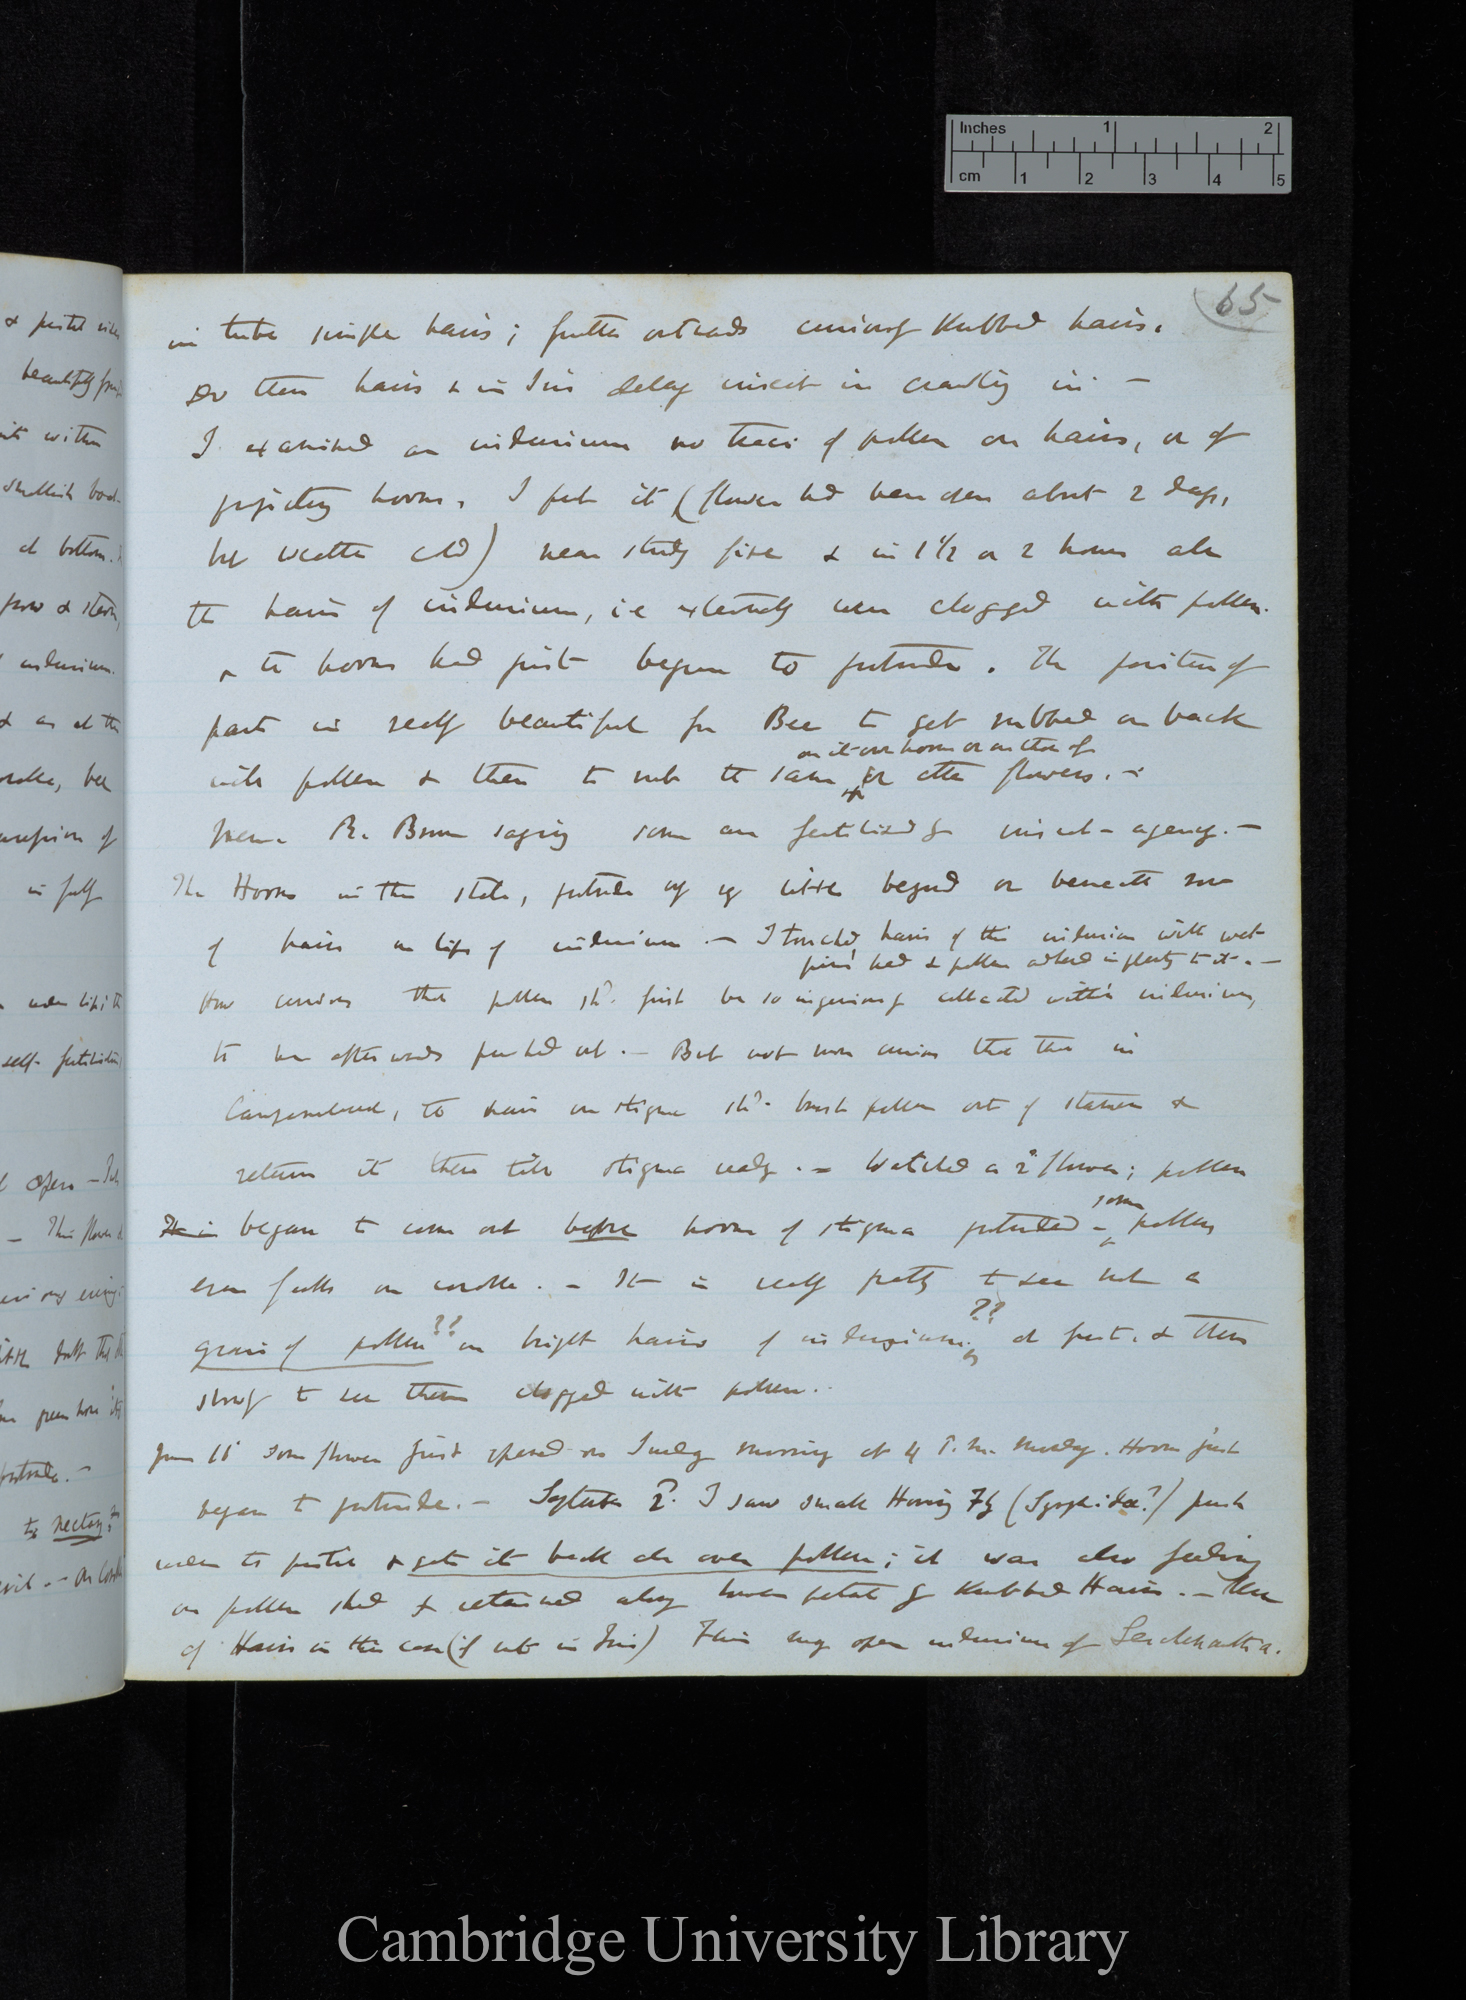 Inches 1 2
cm 1 2 3 4 5
65
in tube simple hairs; further outwards curiously knobbed hairs.
Do these hairs & in Iris delay insect in crawling in. —
I examined an indusium no trace of pollen on hairs, or of
projecting horns. I put it (flower had been open about 2 days,
but weather cold) near study fire & in 1 1/2 or 2 hours all
the hairs of indusium, i.e. externally were clogged with pollen.
& the horns had just begun to protrude. The position of
parts is really beautiful for Bee to get rubbed on back
with pollen & then to rub the same on its own horns or on those of or other flowers. —
R. Brown saying some are fertilised by insect-agency. —
The Horns in this state, protrude only very little beyond or beneath row
of hairs on lips of indusium. — I touched hairs of this indusium with wet
pin's head & pollen adhered in plenty to it. —
How curious that pollen shd. first be so ingeniously collected within indusium,
to be afterwards pushed out. — But not more curious than that in
Campanulaceæ, the hairs on stigma shd. brush pollen out of stamens &
retain it there till stigma ready. — Watched a 2d flower; pollen
began to come out before horns of stigma protruded — some pollen
even falls on corolla. — It is really pretty to see not a
grain of pollen ?? on bright hairs of indusium, ?? at first. & then
slowly to see them clogged with pollen.
June 11 some flower first opened on Sunday morning at 4 P.M. Monday. Horns just
began to protrude. — I saw small Hovering Fly (Syrphidæ?) push
under the pistil & gets its back all over pollen; it was also feeding
on pollen shed & retained along lower petal by Knobbed Hairs. — Use
of Hairs in this case (if not in Iris) This may open indusium of Leschenaultia.
& pistil
beautifully
within
at bottom.
indusium.
corolla, bee
in
self-fertilisation
open —
This flower
protrude. —
the nectary
Cambridge University Library